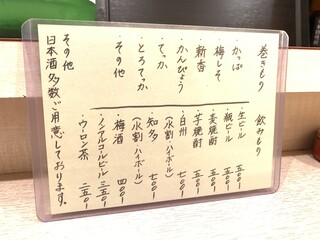 巻きもの
・かっぱ
・梅しそ
・新香
・かんぴょう
・てっか
・とろてっか
・その他
飲みもの
・生ビール 五〇〇ー
・瓶ビール 五〇〇ー
・麦焼酎 五〇〇ー
・芋焼酎 五〇〇ー
・白州
(水割・ハイボール) 七〇〇ー
・知多
(水割・ハイボール) 七〇〇ー
・梅酒 四〇〇ー
・ノンアルコールビール 三五〇ー
・ウーロン茶 二五〇ー
その他
日本酒多数ご用意しております。